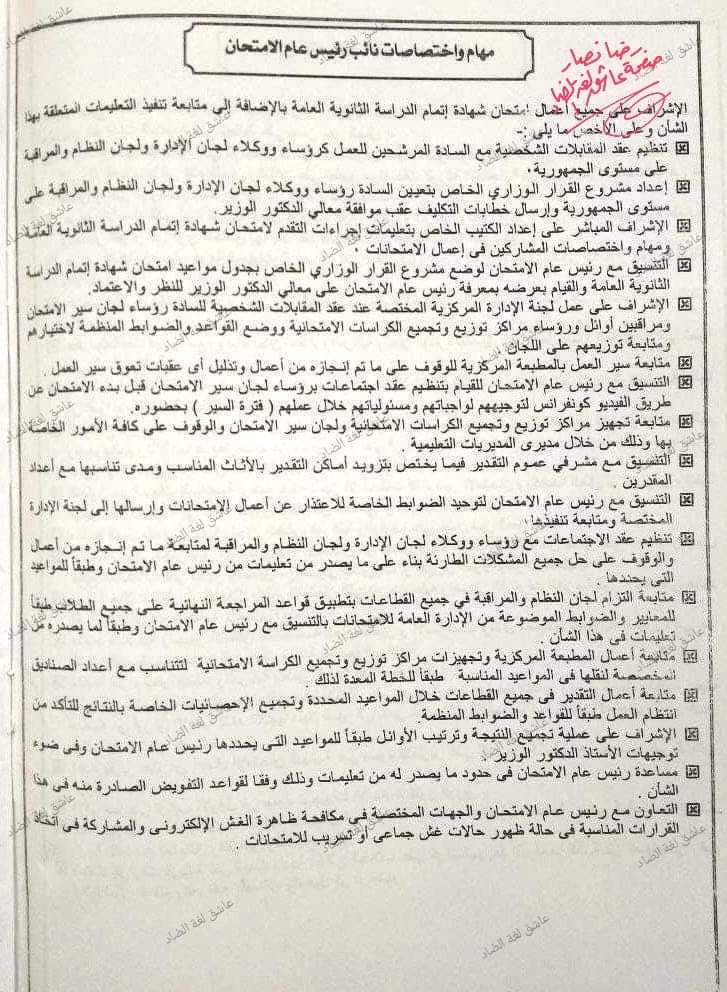 مهام واختصاصات نائب رئيس عام الامتحان
رضا نصار
صفحة عاشق لغة الضاد
الإشراف على جميع أعمال امتحان شهادة إتمام الدراسة الثانوية العامة بالإضافة إلى متابعة تنفيذ التعليمات المتعلقة بهذا
الشأن وعلى الأخص ما يلي :-
تنظيم عقد المقابلات الشخصية مع السادة المرشحين للعمل كرؤساء ووكلاء لجان الإدارة ولجان النظام والمراقبة
على مستوى الجمهورية .
إعداد مشروع القرار الوزاري الخاص بتعيين السادة رؤساء ووكلاء لجان الإدارة ولجان النظام والمراقبة على
مستوى الجمهورية وإرسال خطابات التكليف عقب موافقة معالي الدكتور الوزير.
الإشراف المباشر على إعداد الكتيب الخاص بتعليمات إجراءات التقدم لامتحان شهادة إتمام الدراسة الثانوية العامة
ومهام واختصاصات المشاركين في إعمال الامتحانات .
التنسيق مع رئيس عام الامتحان لوضع مشروع القرار الوزاري الخاص بجدول مواعيد امتحان شهادة إتمام الدراسة
الثانوية العامة والقيام بعرضه بمعرفة رئيس عام الامتحان على معالي الدكتور الوزير للنظر والاعتماد.
الإشراف على عمل لجنة الإدارة المركزية المختصة عند عقد المقابلات الشخصية للسادة رؤساء لجان سير الامتحان
ومراقبين أوائل ورؤساء مراكز توزيع وتجميع الكراسات الامتحانية ووضع القواعد والضوابط المنظمة لاختيارهم
ومتابعة توزيعهم على اللجان
متابعة سير العمل بالمطبعة المركزية للوقوف على ما تم إنجازه من أعمال وتذليل أى عقبات تعوق سير العمل .
التنسيق مع رئيس عام الامتحان للقيام بتنظيم عقد اجتماعات برؤساء لجان سير الامتحان قبل بدء الامتحان عن
طريق الفيديو كونفرانس لتوجيههم لواجباتهم ومسئولياتهم خلال عملهم ( فترة السير ) بحضوره.
متابعة تجهيز مراكز توزيع وتجميع الكراسات الامتحانية ولجان سير الامتحان والوقوف على كافة الأمور الخاصة
بها وذلك من خلال مديرى المديريات التعليمية .
التنسيق مع مشرفي عموم التقدير فيما يختص بتزويد أماكن التقدير بالأثاث المناسب ومدى تناسبها مع أعداد
المقدرين .
التنسيق مع رئيس عام الامتحان لتوحيد الضوابط الخاصة للاعتذار عن أعمال الامتحانات وإرسالها إلى لجنة الإدارة
المختصة ومتابعة تنفيذها .
تنظيم عقد الاجتماعات مع رؤساء ووكلاء لجان الإدارة ولجان النظام والمراقبة لمتابعة ما تم إنجازه من أعمال
والوقوف على حل جميع المشكلات الطارئة بناء على ما يصدر من تعليمات من رئيس عام الامتحان وطبقاً للمواعيد
التى يحددها .
متابعة التزام لجان النظام والمراقبة في جميع القطاعات بتطبيق قواعد المراجعة النهائية على جميع الطلاب طبقاً
للمعايير والضوابط الموضوعة من الإدارة العامة للامتحانات بالتنسيق مع رئيس عام الامتحان وطبقا لما يصدره من
تعليمات في هذا الشأن .
متابعة أعمال المطبعة المركزية وتجهيزات مراكز توزيع وتجميع الكراسة الامتحانية لتتناسب مع أعداد الصناديق
المخصصة لنقلها فى المواعيد المناسبة طبقاً للخطة المعدة لذلك .
متابعة أعمال التقدير فى جميع القطاعات خلال المواعيد المحددة وتجميع الإحصائيات الخاصة بالنتائج للتأكد من
انتظام العمل طبقاً للقواعد والضوابط المنظمة.
الإشراف على عملية تجميع النتيجة وترتيب الأوائل طبقاً للمواعيد التى يحددها رئيس عام الامتحان وفى ضوء
توجيهات الأستاذ الدكتور الوزير .
مساعدة رئيس عام الامتحان في حدود ما يصدر له من تعليمات وذلك وفقا لقواعد التفويض الصادرة منه في هذا
الشأن .
التعاون مع رئيس عام الامتحان والجهات المختصة في مكافحة ظاهرة الغش الإلكترونى والمشاركة في اتخاذ
القرارات المناسبة فى حالة ظهور حالات غش جماعى أو تسريب للامتحانات .
عاشق لغة الضاد